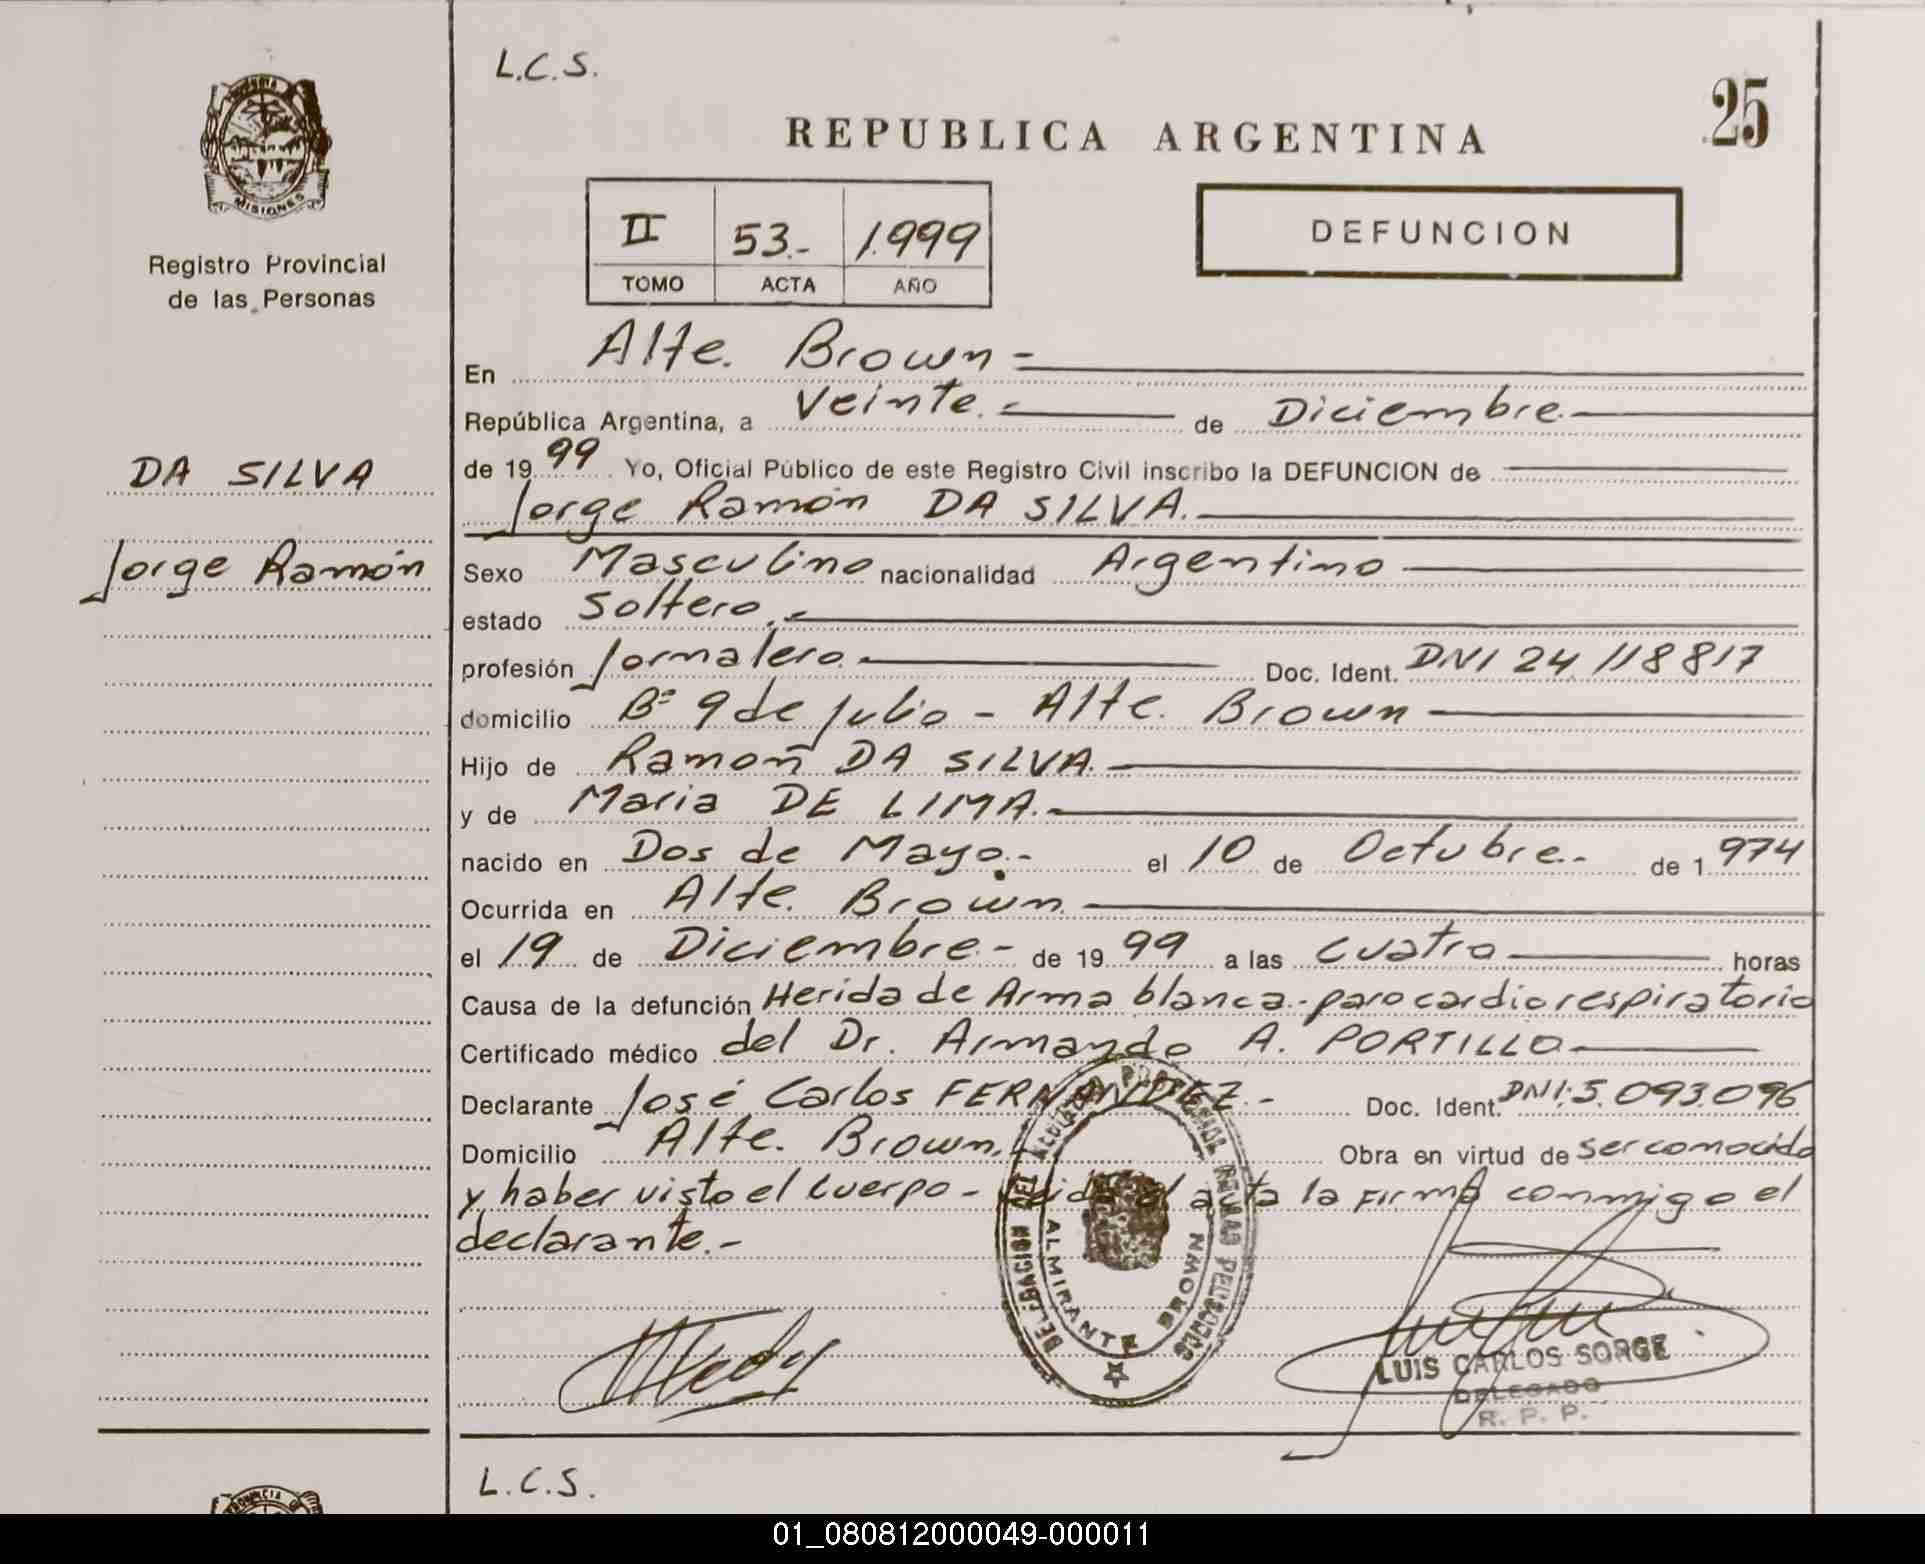 L.C.S.
25
REPUBLICA ARGENTINA
MISIONES
Registro Provincial
de las Personas
II 53.- 1.999
TOMO ACTA AÑO
DEFUNCION
DA SILVA
Jorge Ramón
En Alte. Brown -
República Argentina, a Veinte.- de Diciembre.
de 19 99 Yo, Oficial Público de este Registro Civil inscribo la DEFUNCION de
Jorge Ramón DA SILVA.
Sexo Masculino nacionalidad Argentino
estado Soltero.-
profesión Jornalero. Doc. Ident. DNI 24.118817
domicilio Bº 9 de Julio - Alte. Brown
Hijo de Ramón DA SILVA.
y de Maria DE LIMA.-
nacido en Dos de Mayo.- el 10 de Octubre.- de 1 974
Ocurrida en Alte. Brown.
el 19 de Diciembre.- de 19 99 a las cuatro horas
Causa de la defunción Herida de Arma blanca.- paro cardiorespiratorio
Certificado médico del Dr. Armando A. PORTILLO.
Declarante José Carlos FERNANDEZ.- Doc. Ident. DNI:5.093.096
Domicilio Alte. Brown. Obra en virtud de ser conocido
y haber visto el cuerpo - leida el acta la firma conmigo el
declarante.-
DELEGACION DEL REGISTRO PROVINCIAL
ALMIRANTE BROWN
LUIS CARLOS SORGE
DELEGADO
R. P. P.
L.C.S.
PROVINCIA
01_080812000049-000011